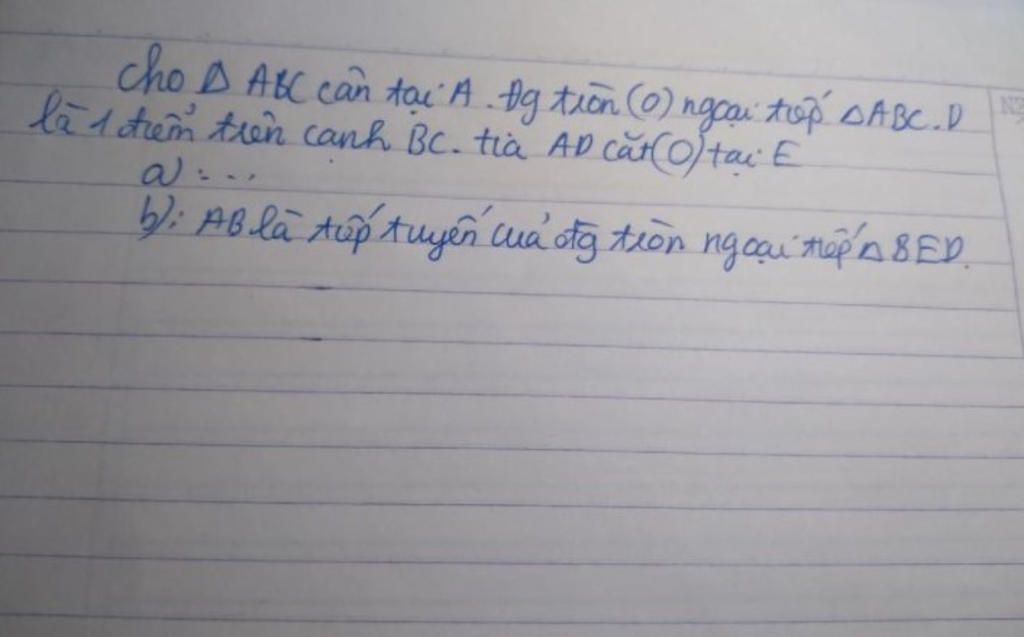 Cho Δ ABC cân tại A. Đg tròn (O) ngoại tiếp ΔABC. D
là 1 điểm trên cạnh BC. tia AD cắt (O) tại E
a) : ...
b): AB là tiếp tuyến của đg tròn ngoại tiếp Δ BED.